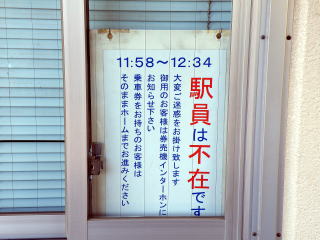 11:58～12:34
駅員は不在です
大変ご迷惑をお掛け致します
御用のお客様は券売機インターホンに
お知らせ下さい
乗車券をお持ちのお客様は
そのままホームまでお進みください